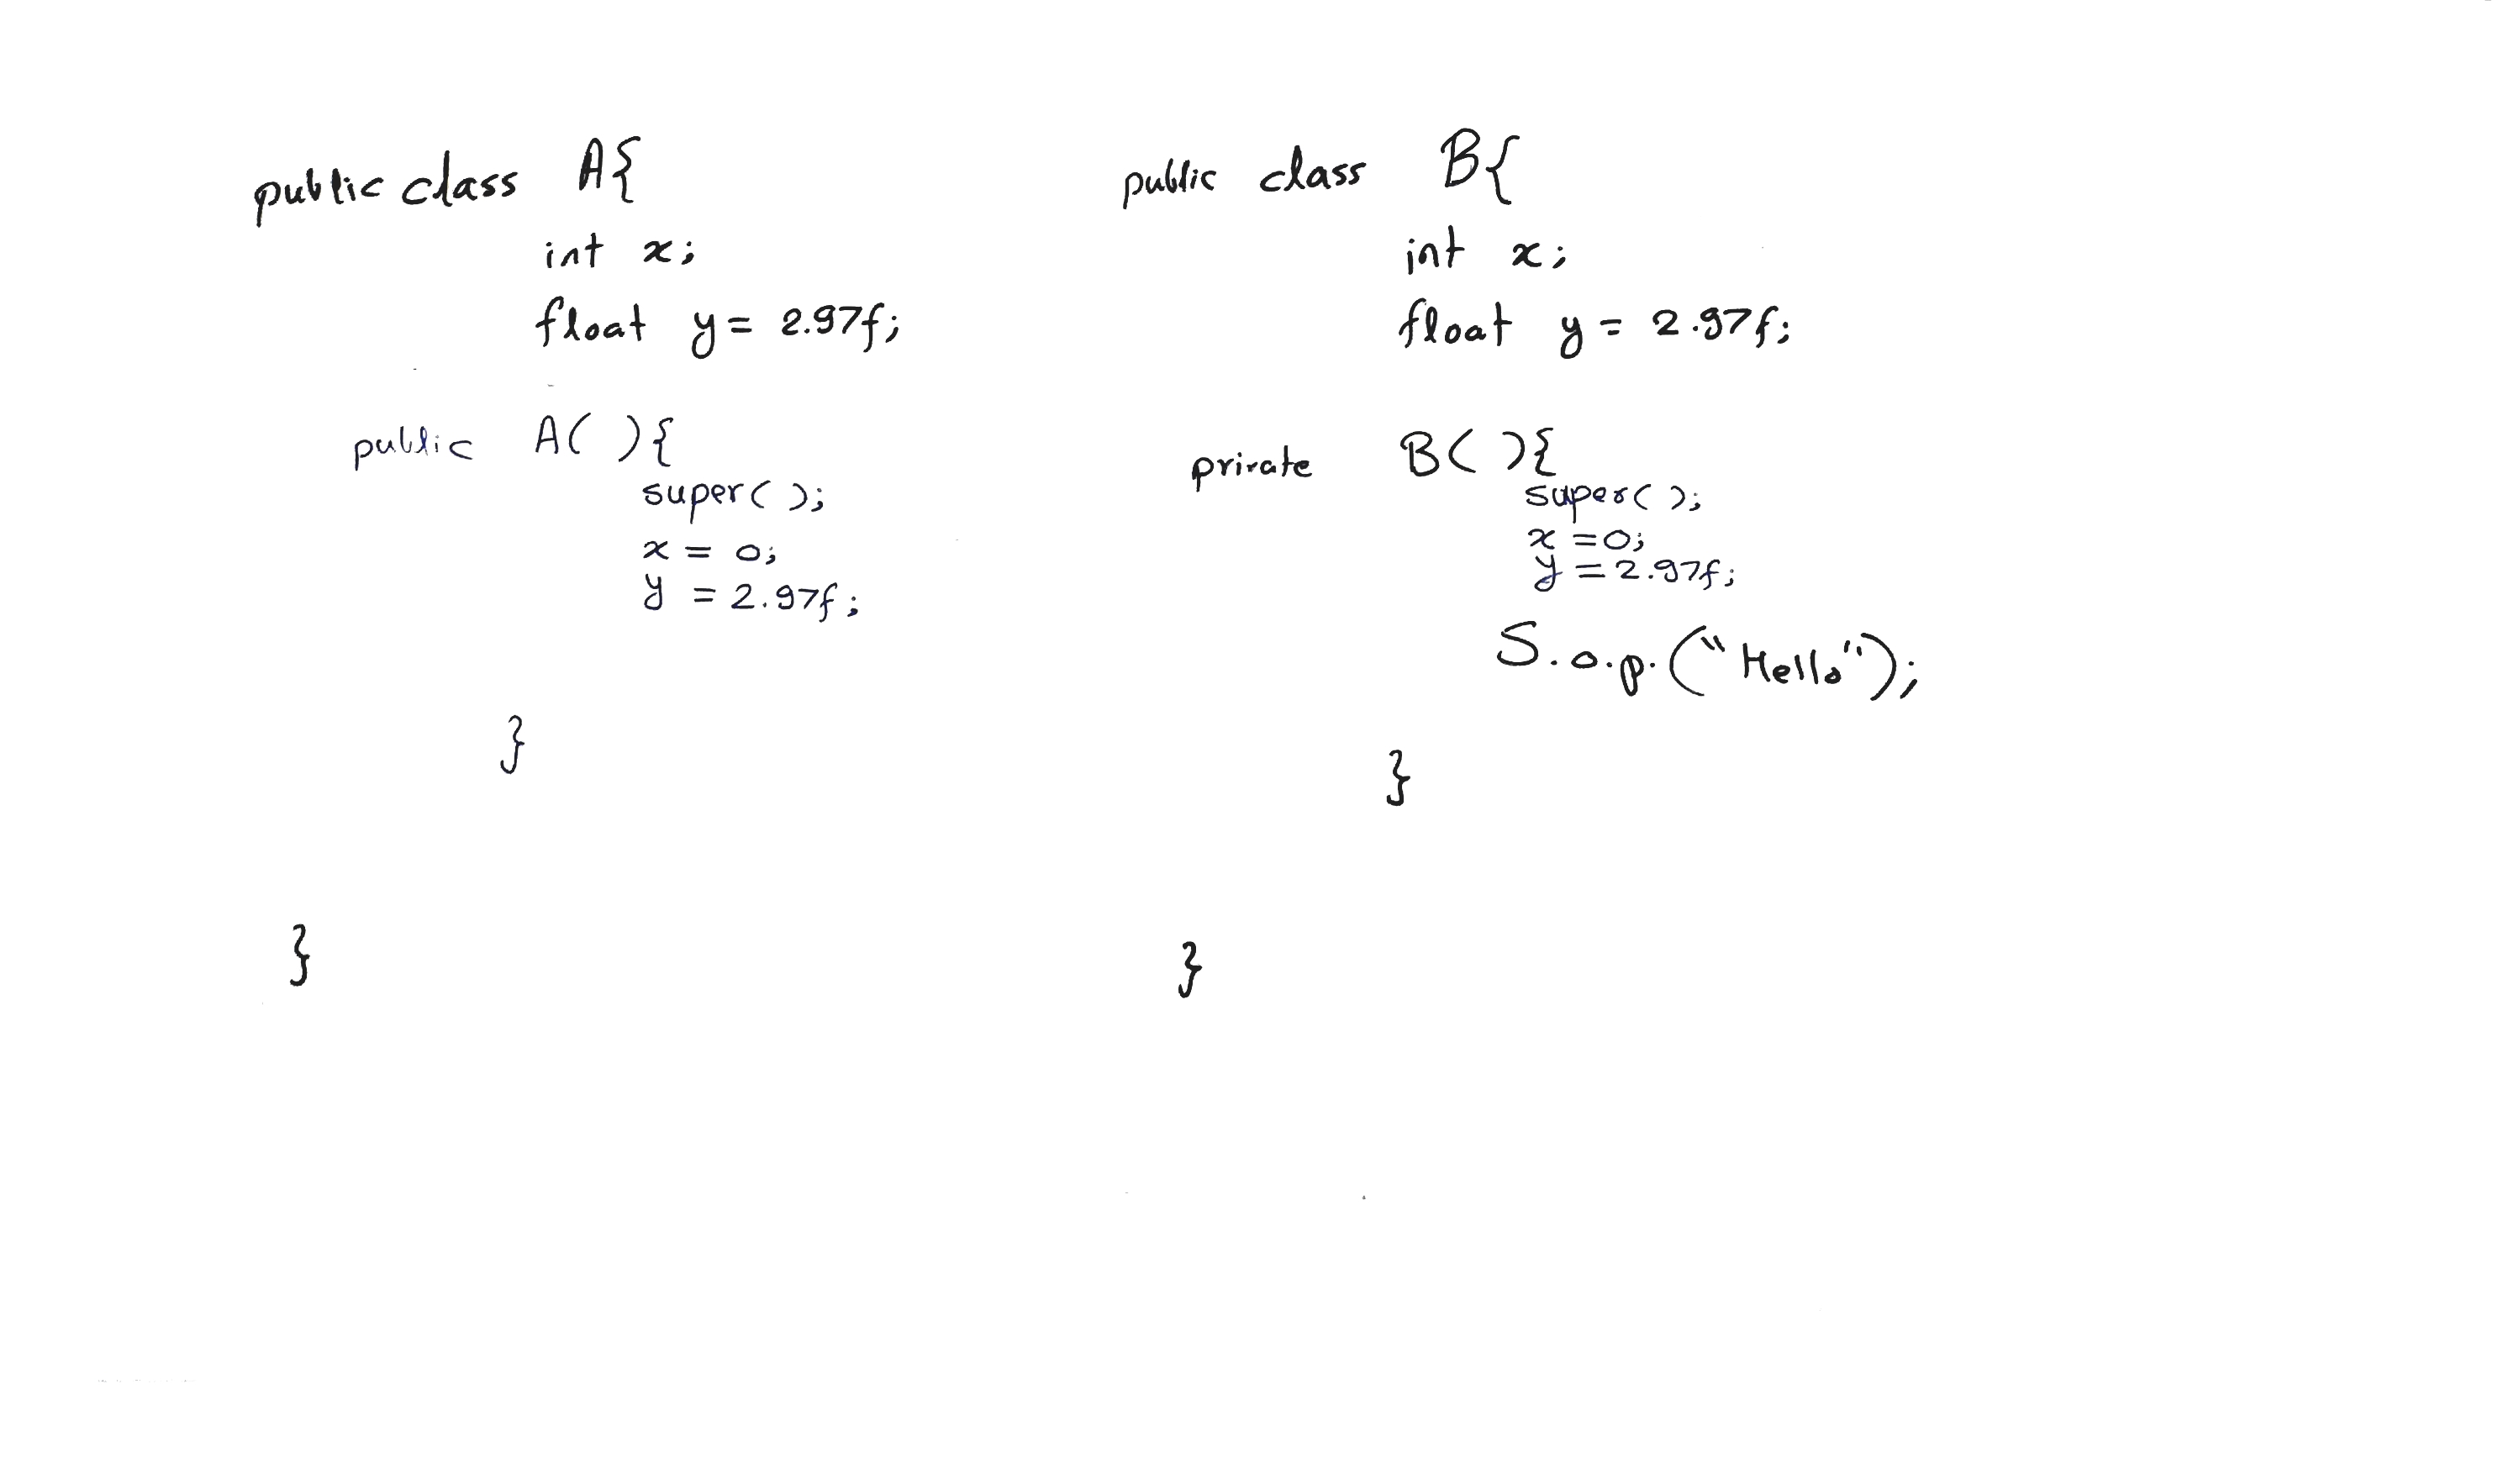 public class A{
int x;
float y = 2.97f;
public A( ){
super( );
x = 0;
y = 2.97f;
}
}
public class B{
int x;
float y = 2.97f;
private B( ){
super( );
x = 0;
y = 2.97f;
S.o.p.("Hello");
}
}